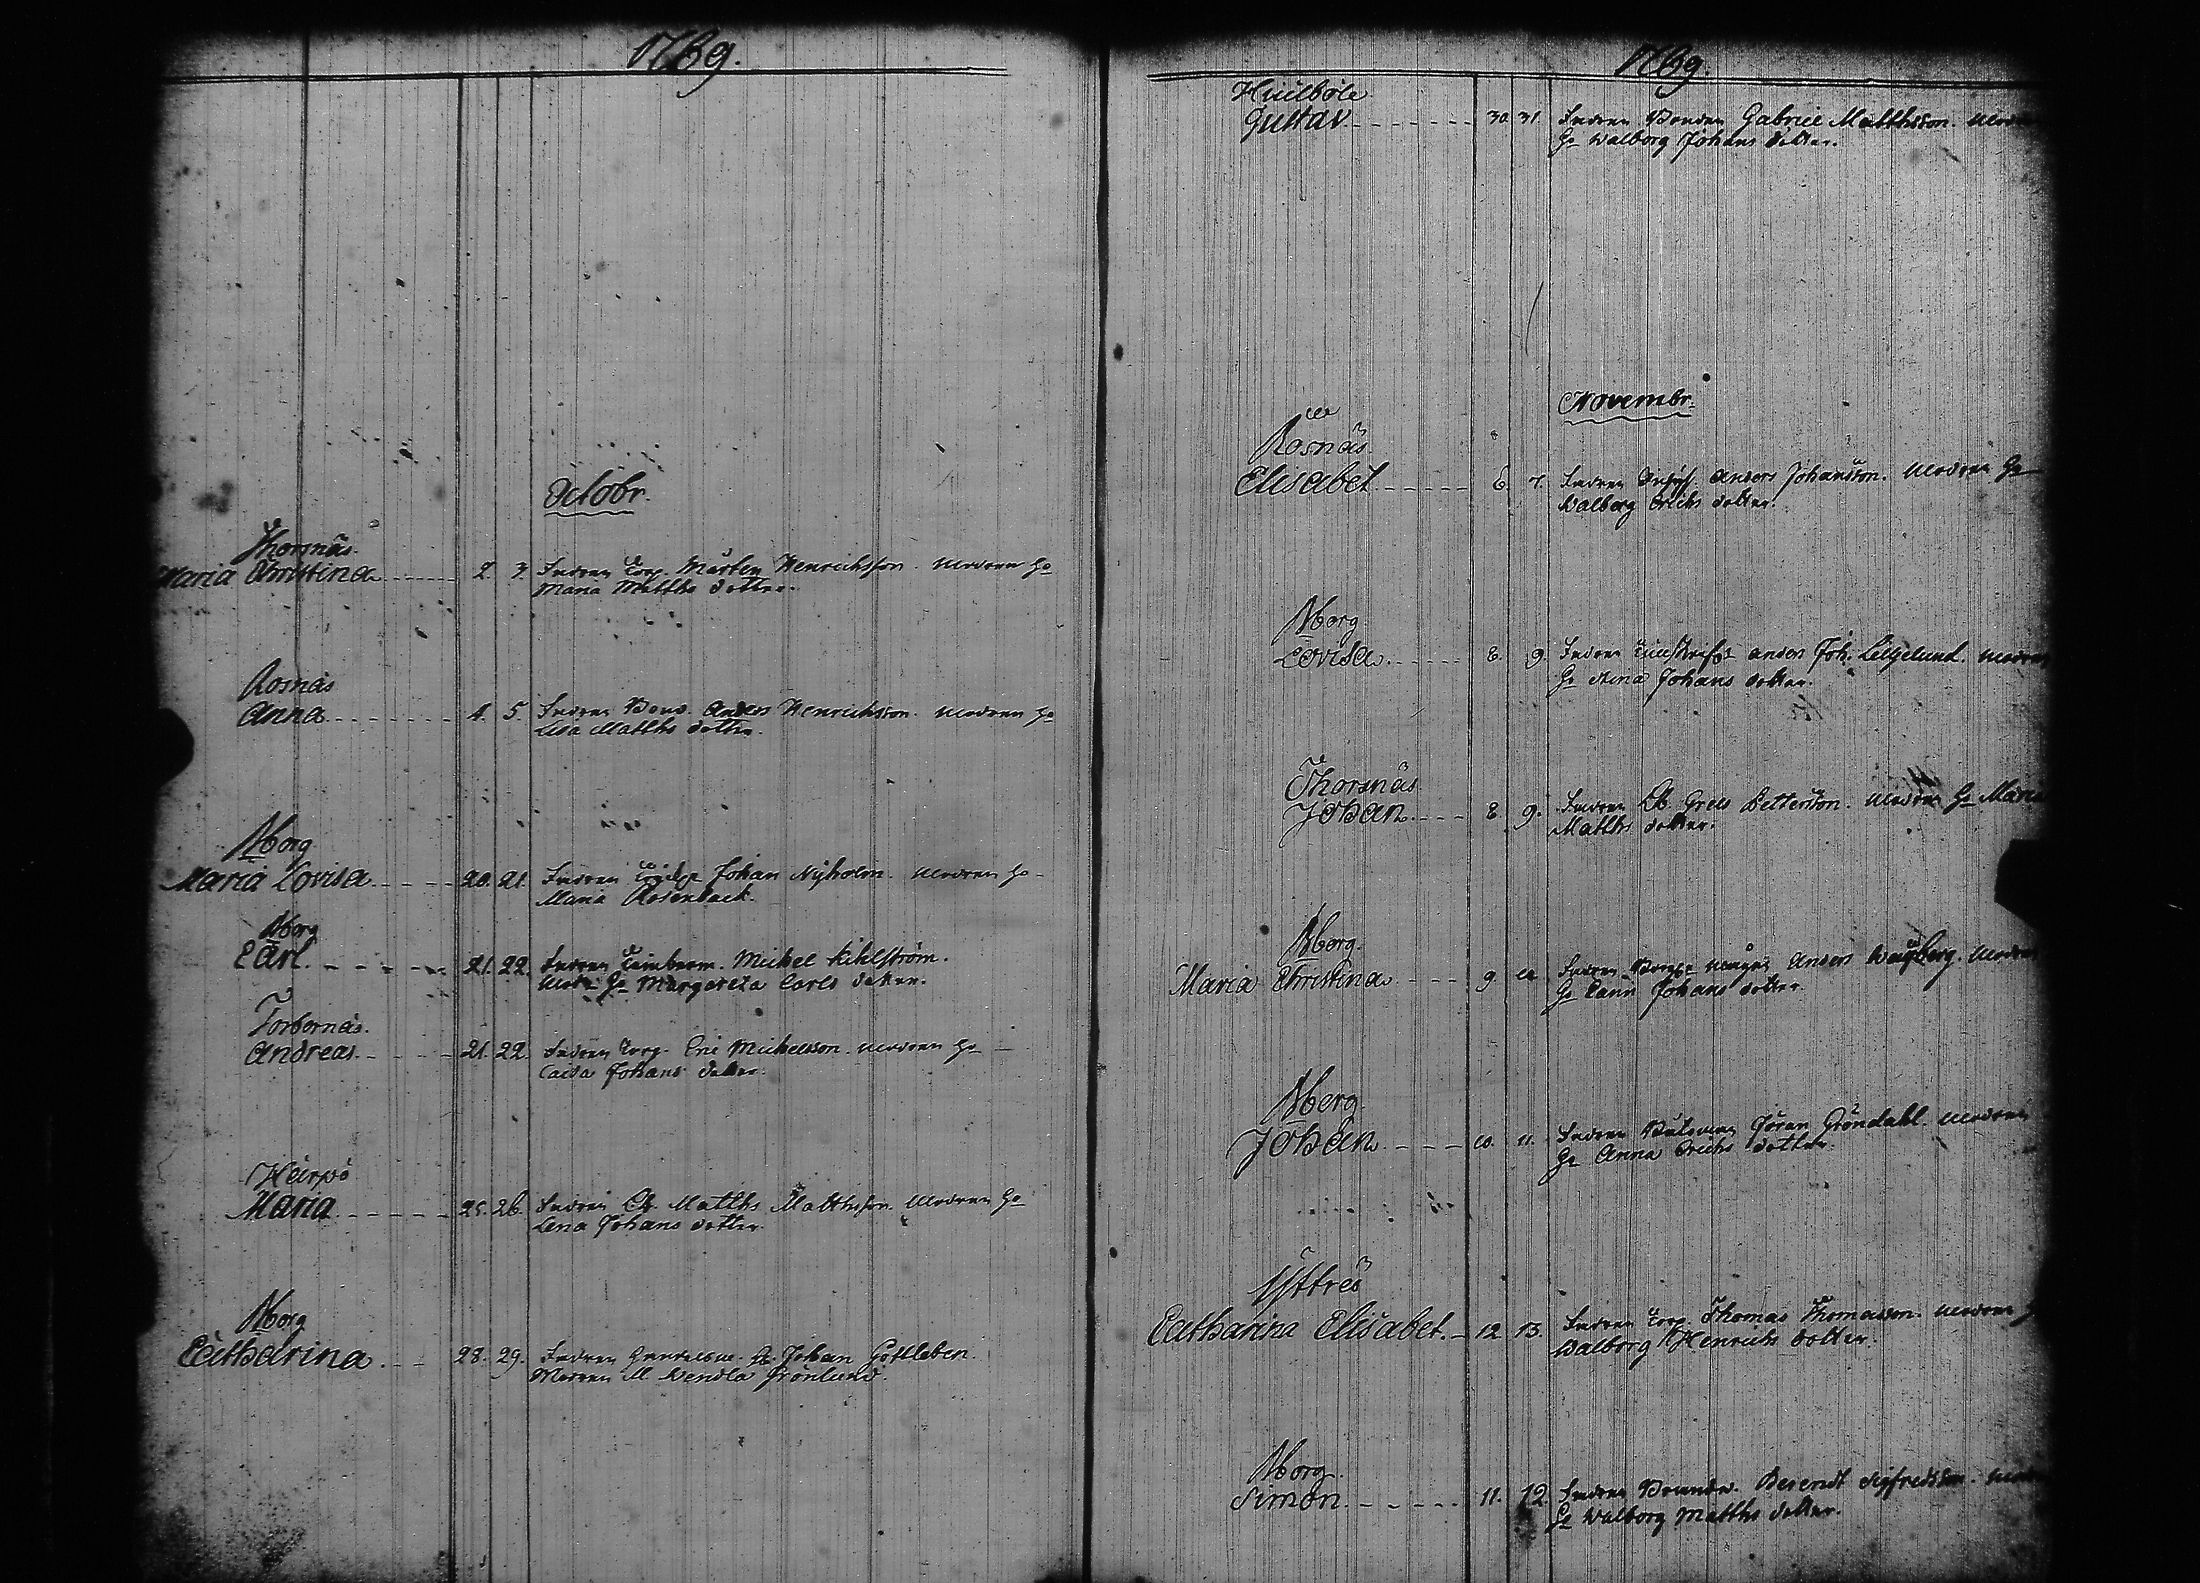 1769.
Octobr.
Thorsnäs.
Maria Christina 2. 3. Fadren Torp. Mårten Henrichsson. Modren H
Maria Matths dotter.
Rosnäs
Anna 4. 5. Fadren Bond. Anders Henrichsson. Modren H
Lisa Matths dotter.
Nborg
Maria Lovisa 20. 21. Fadren Johan Nyholm. Modren H
Maria Rosenback.
Nborg
Carl. 21. 22. Fadren Timberm. Michel Kihlström.
Modr. H Margareta Carls dotter.
Torbornäs.
Andreas. 21. 22. Fadren Torp. Eric Michelsson. Modren H
Caisa Johans dotter.
Heirpö
Maria 25. 26. Fadren Matths Matthsson. Modren H
Lena Johans dotter.
Nborg
Catharina. 28. 29. Fadren Johan Gottleben.
Modren M Wendla Grönlund.
1769.
Huilböle
Gustav 30. 31. Fadren Bonden Gabriel Matthsson.
H Walborg Johans dotter.
Novembr.
Rosnäs.
Elisabet 6. 7. Fadren Anders Johansson. Modren H
Walborg Erichs dotter.
Nborg
Lovisa. 8. 9. Fadren Anders Joh. Liljelund.
H Stina Johans dotter.
Thorsnäs
Johan. 8. 9. Fadren Grels Pettersson. Modren H Maria
Matths dotter.
Nborg.
Maria Christina 9. 10. Fadren Anders Modren
H Johans dotter.
Nborg.
Johan 10. 11. Fadren Båtsman Jöran Gröndahl. Modren
H Anna Erichs dotter.
Yttreö
Catharina Elisabet. 12. 13. Fadren Torp. Thomas Thomasson. Modren
Walborg Henrichs dotter.
Nborg.
Simon. 11. 12. Fadren Berendt Sigfredsson.
H Walborg Matths dotter.